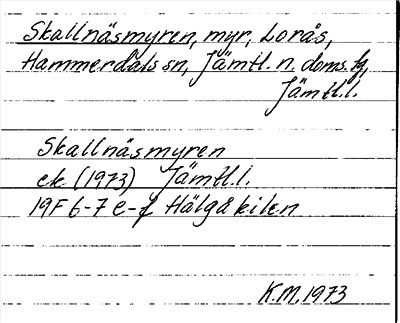 Skallnäsmyren, myr, Lorås,
Hammerdals sn, Jämtl. n. doms.sg,
Jämtl.l.
Skallnäsmyren
ek (1973) Jämtl.l.
19F 6-7 e-f Hälgåkilen
K.M. 1973